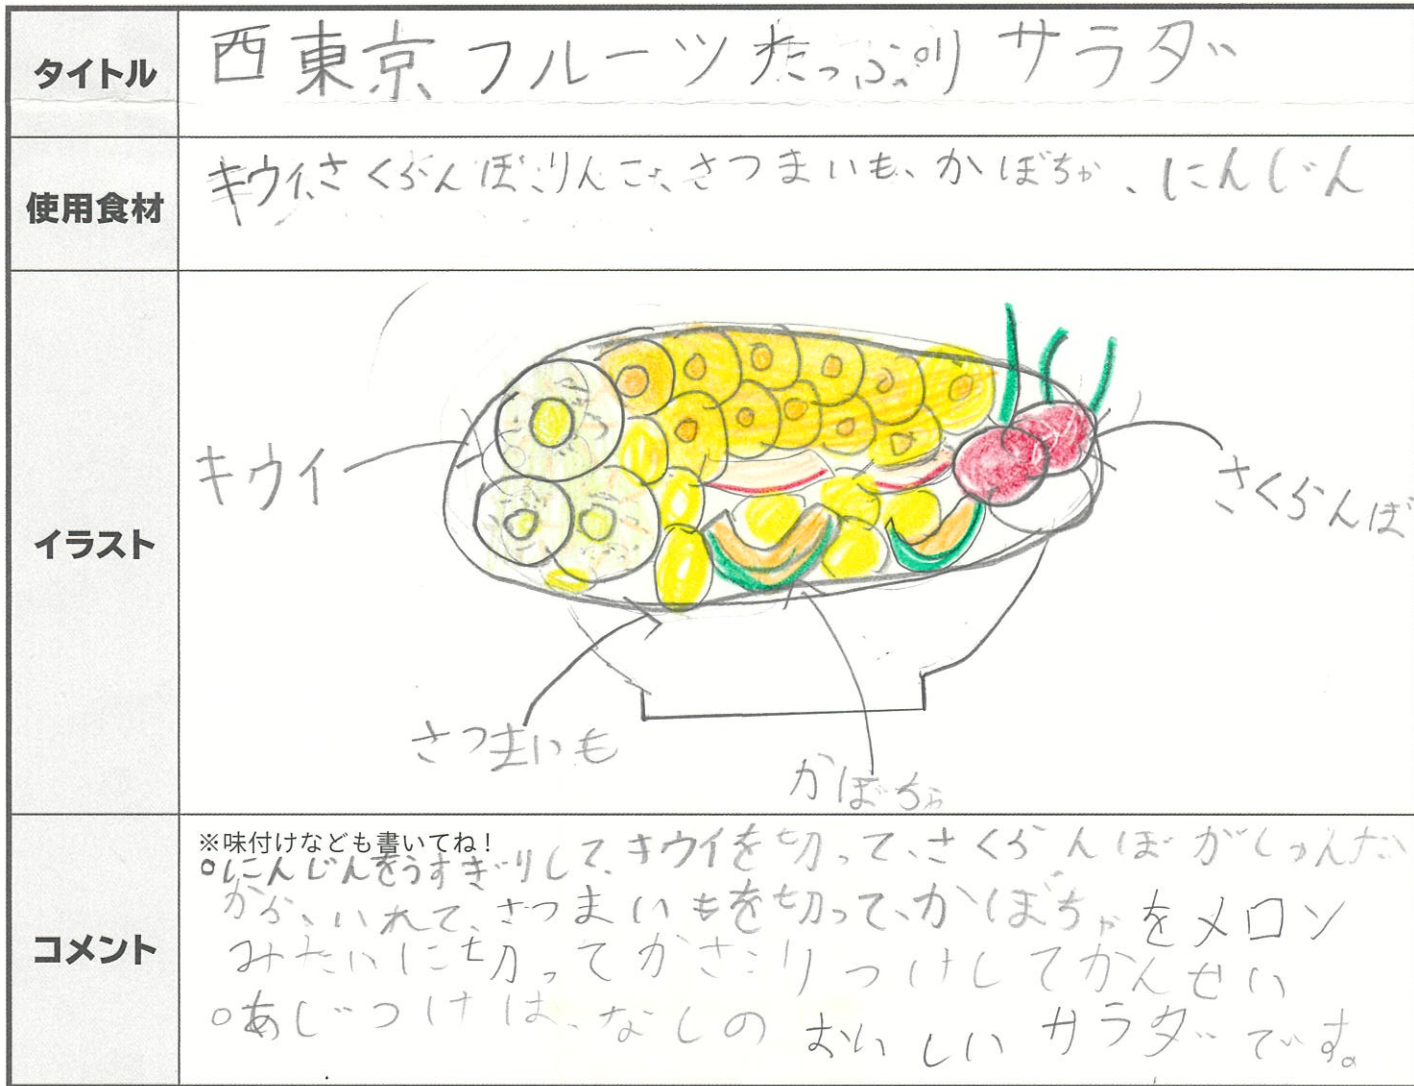 タイトル
西東京フルーツたっぷりサラダ
使用食材
キウイ、さくらんぼ、りんご、さつまいも、かぼちゃ、にんじん
イラスト
キウイ
さくらんぼ
さつまいも
かぼちゃ
コメント
※味付けなども書いてね!
○にんじんをうすぎりして、キウイを切って、さくらんぼが
から、いれて、さつまいもを切って、かぼちゃをメロン
みたいに切ってかざりつけしてかんせい
○あじつけは、なしのおいしいサラダです。